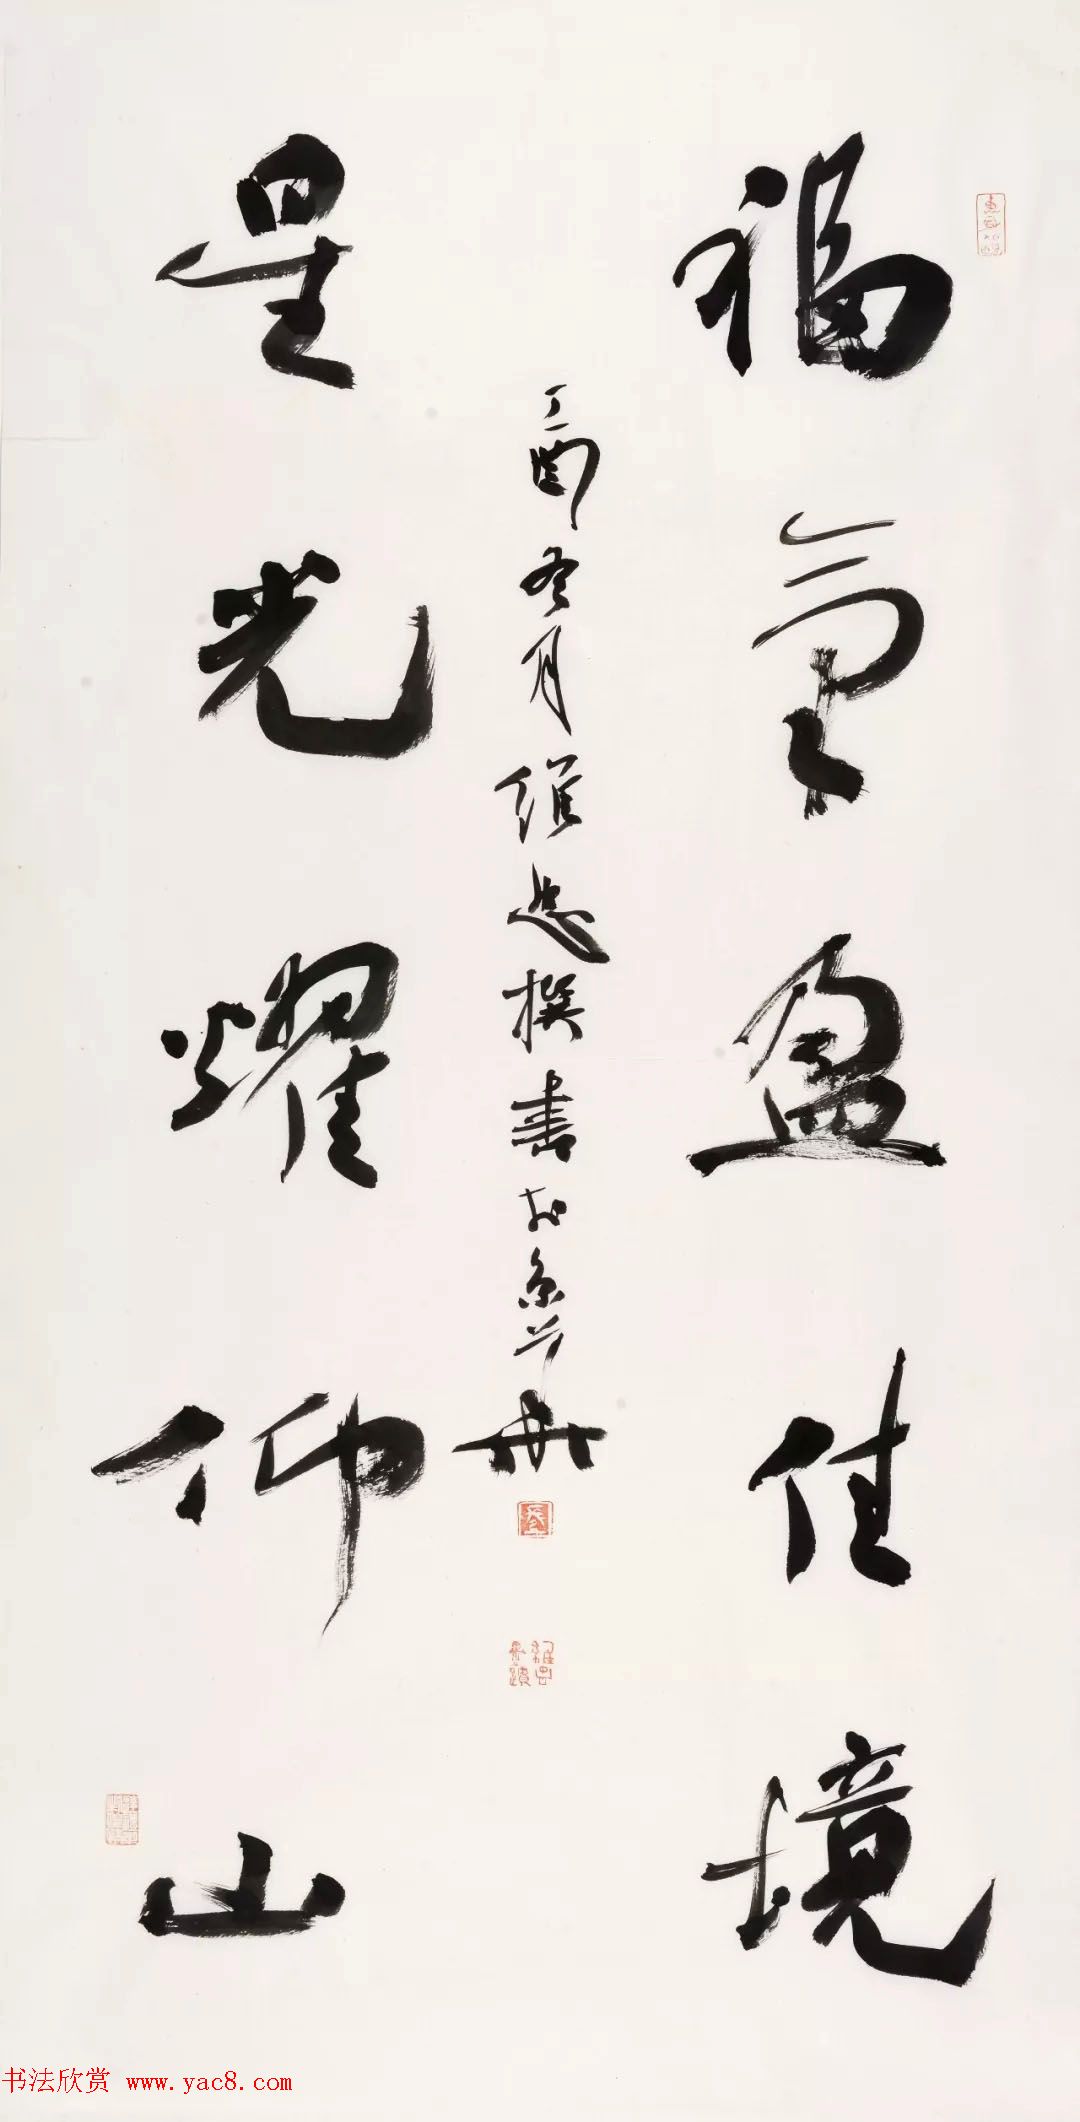 福气盈佳境
星光耀仰山
丁酉冬月维忠撰书于京华
书法欣赏 www.yac8.com